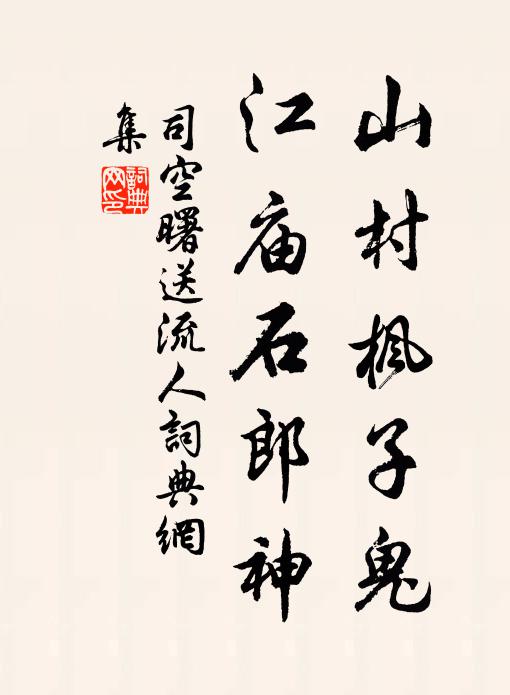 山村楓子鬼
江庙石郎神
司空曙送流人詞典網
集
詞典网印